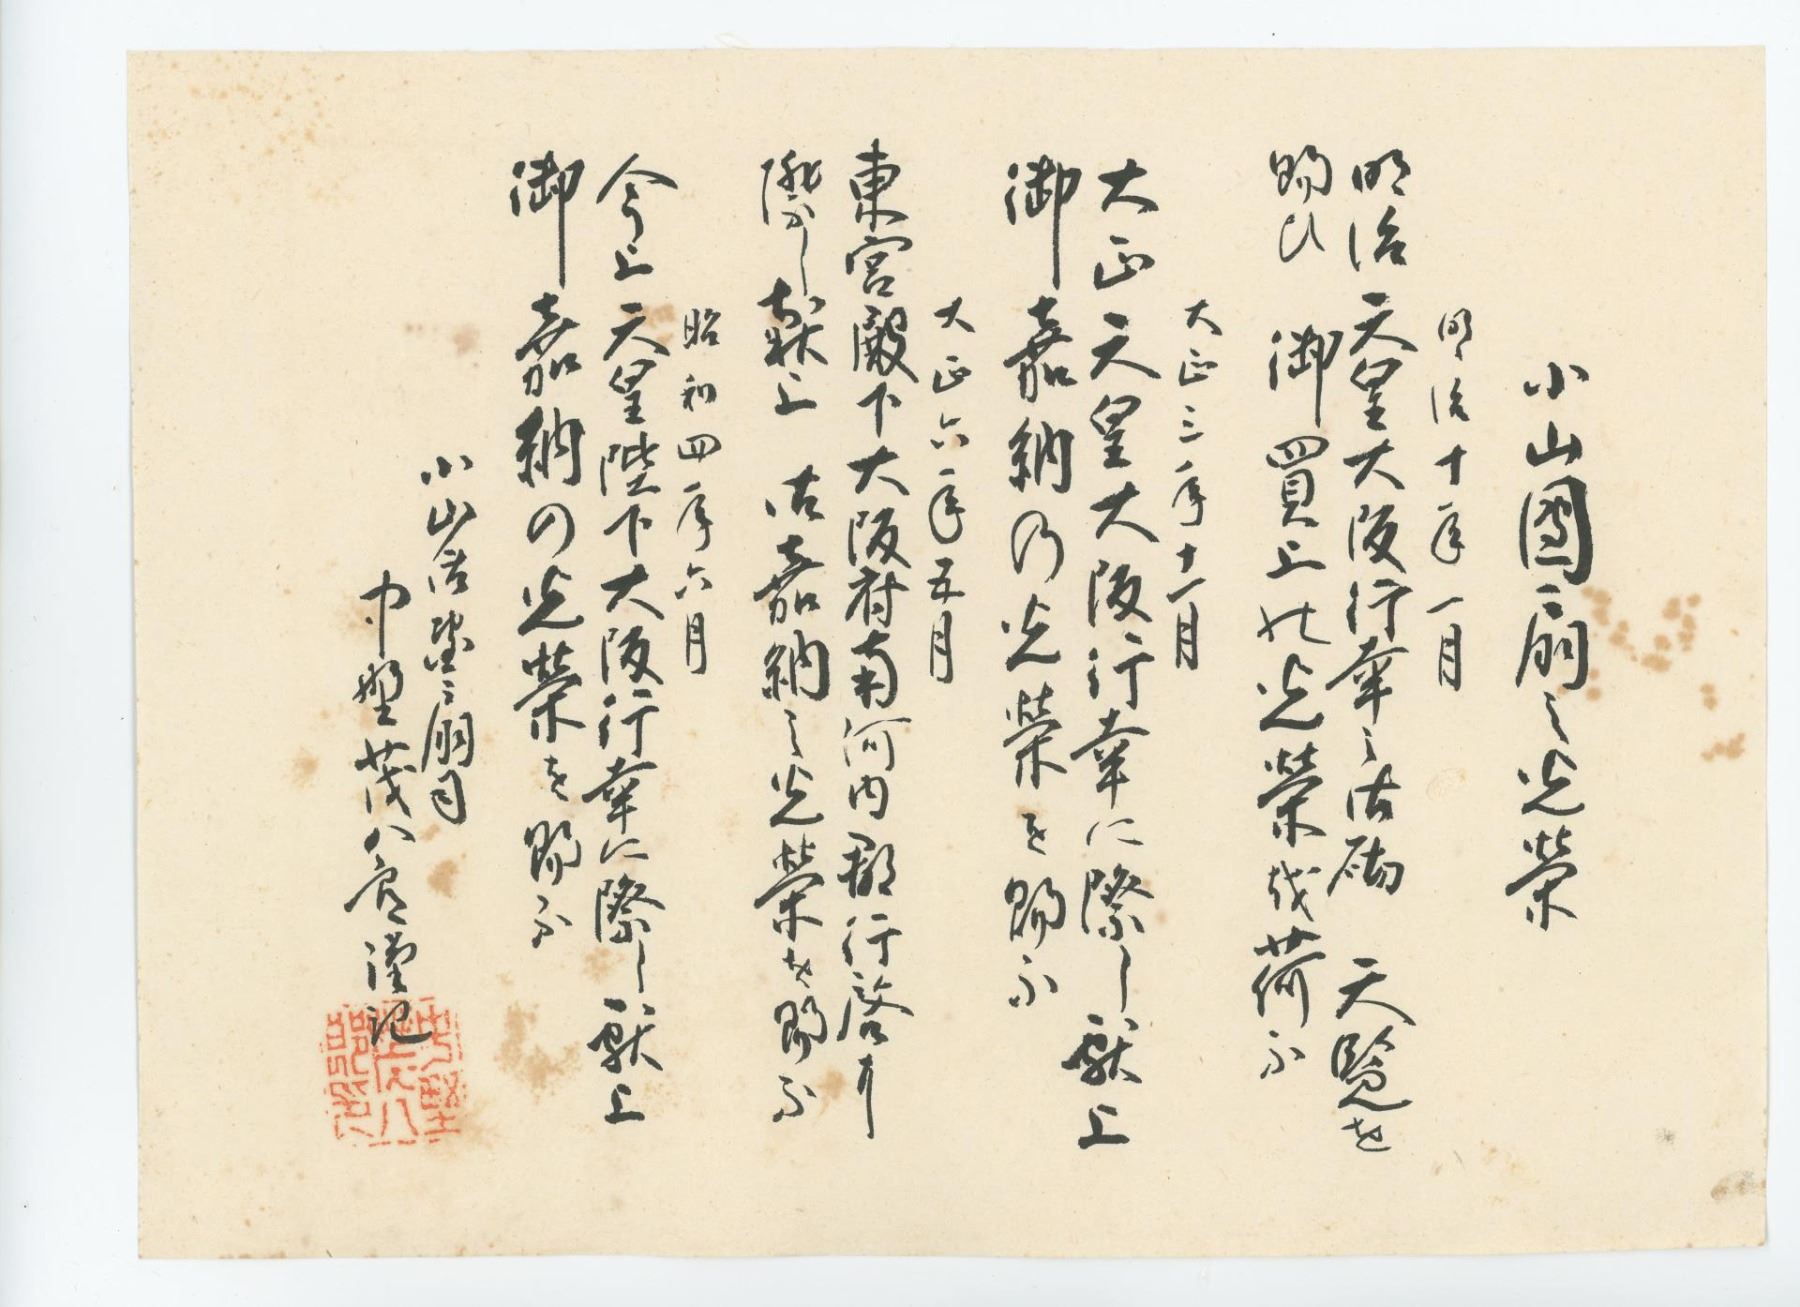 小山團扇之光榮
明治十年一月
明治天皇大阪行幸之御砌　天覧を
賜ひ　御買上の光榮を荷ふ
大正三年十一月
大正天皇大阪行幸に際し献上
御嘉納の光榮を賜ふ
大正六年五月
東宮殿下大阪府南河内郡行啓
際し献上　御嘉納之光榮を賜ふ
昭和四年六月
今上天皇陛下大阪行幸に際し献上
御嘉納の光榮を賜ふ
小山 扇司
中野茂八 謹記